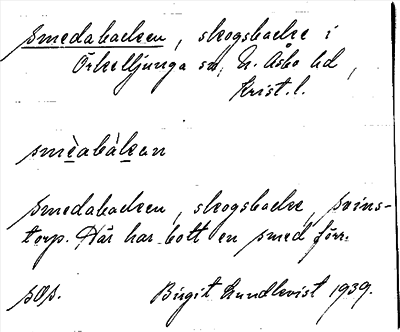 Smedabacken, skogsbacke i
Örkelljunga sn, N. Åsbo hd,
Krist. l.
smèabàkan
Smedabacken, skogsbacke, Svins-
torp. Där har bott en smed förr.
sOp.
Birgit Lundkvist 1939.